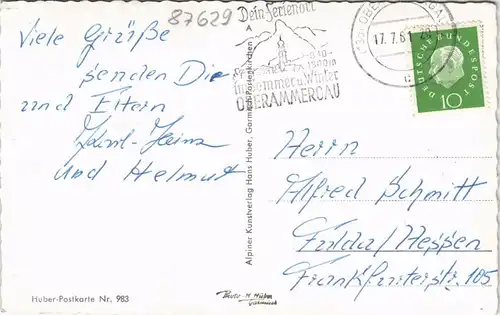 87629
Viele Grüße
senden Dir
und Eltern
Karl-Heinz
und Helmut
Dein Ferienort
im Sommer u. Winter
OBERAMMERGAU
17.7.61
DEUTSCHE BUNDESPOST
10
Alpiner Kunstverlag Hans Huber, Garmisch-Partenkirchen
Herrn
Alfred Schmitt
Fulda/Hessen
Frankfurterstr. 105
Huber-Postkarte Nr. 983
Photo H. Huber
Garmisch